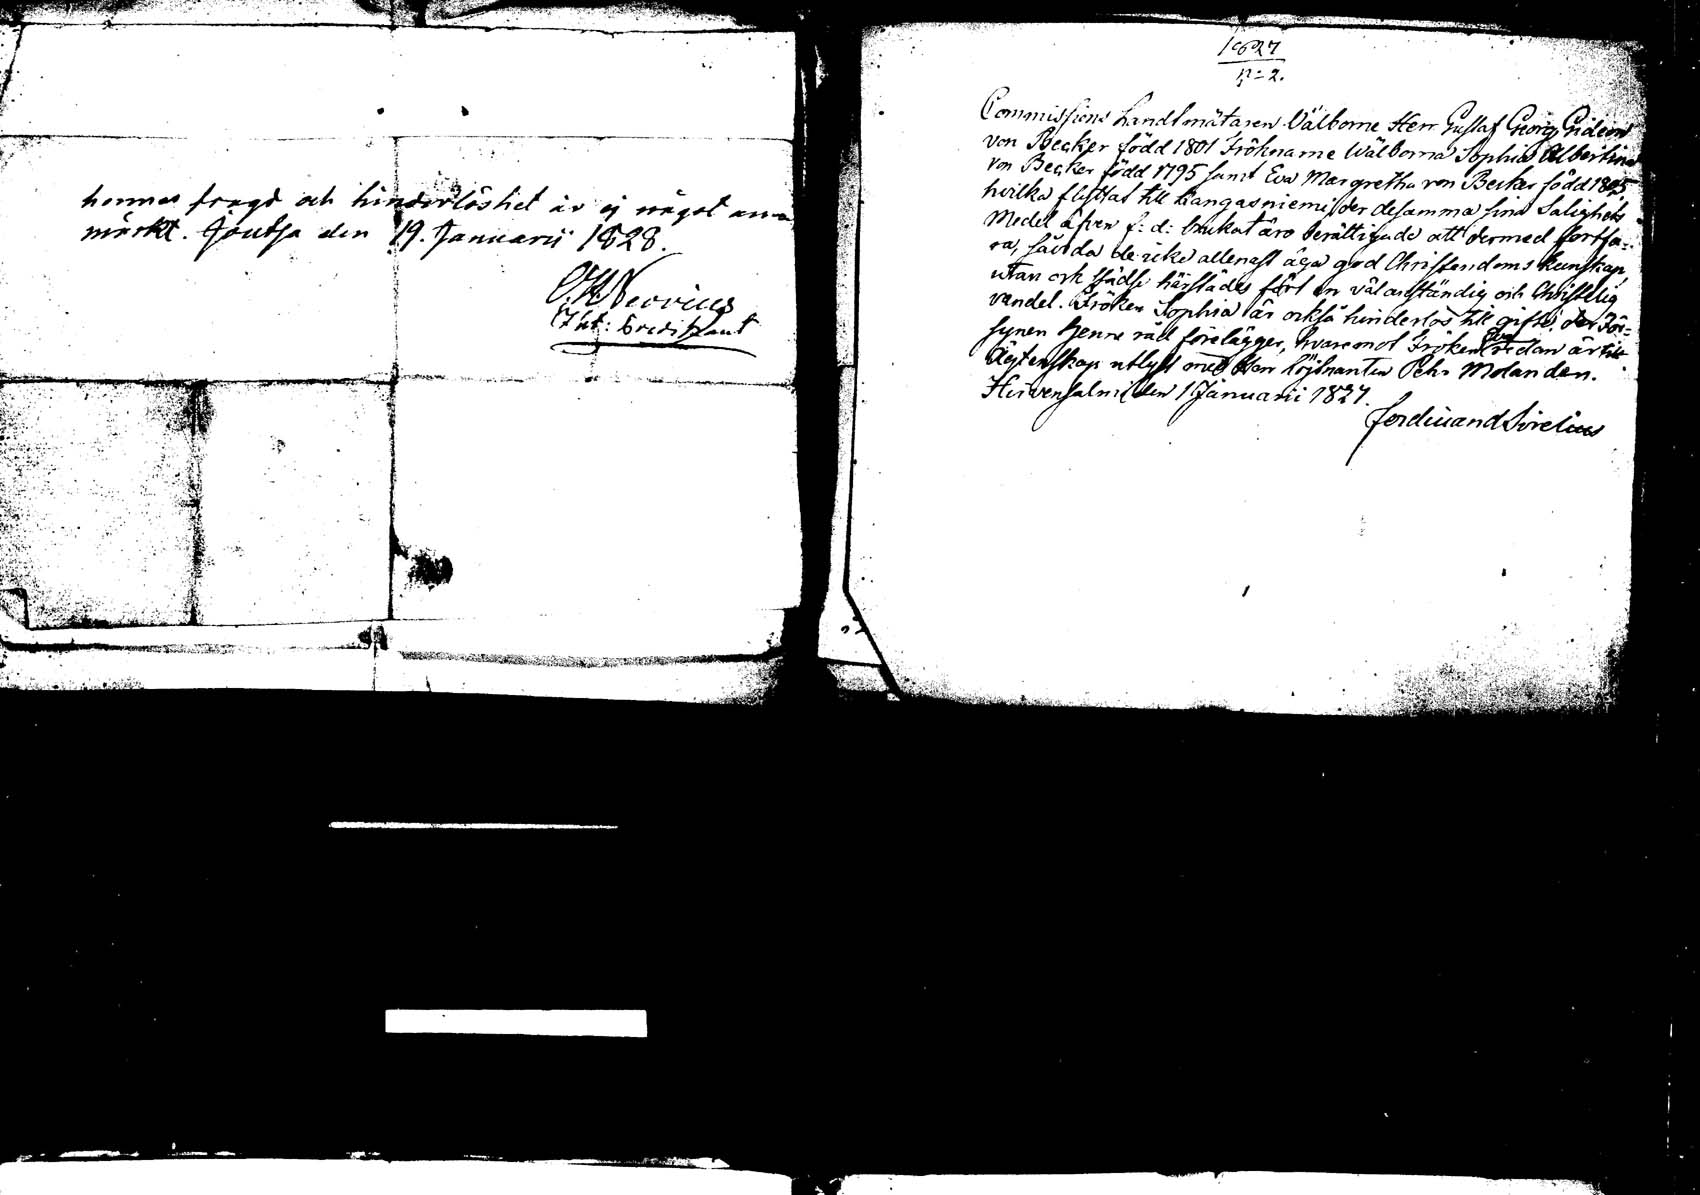 hennes frägd och hinderlöshet är ej något an-
märkt. Joutsa den 19. Januarii 1828.
Neovius
1827
N:o 2.
Commissions Landtmätaren Välborne Herr Gustaf Georg Gideon
von Becker född 1801 Fröknarne Wälborna Sophia Albertina
von Becker född 1795 samt Eva Margretha von Becker född 1805
hvilka flyttat till Kangasniemi, der desamma sina Salighets
Medel äfven f: d: brukat äro berättigade att dermed fortfa-
ra, såvida de icke allenast äga god Christendoms kunskap,
utan ock städse härstädes fört en välanständig och Christelig
vandel. Fröken Sophia är också hinderlös till gifte, der För-
synen henne råd förelägger, hvaremot Fröken Eva redan är till
Ägtenskap utlyst med Herr Löjtnanten Pehr Molander.
Hirvensalmi den 1 Januarii 1827.
Ferdinand Sirelius